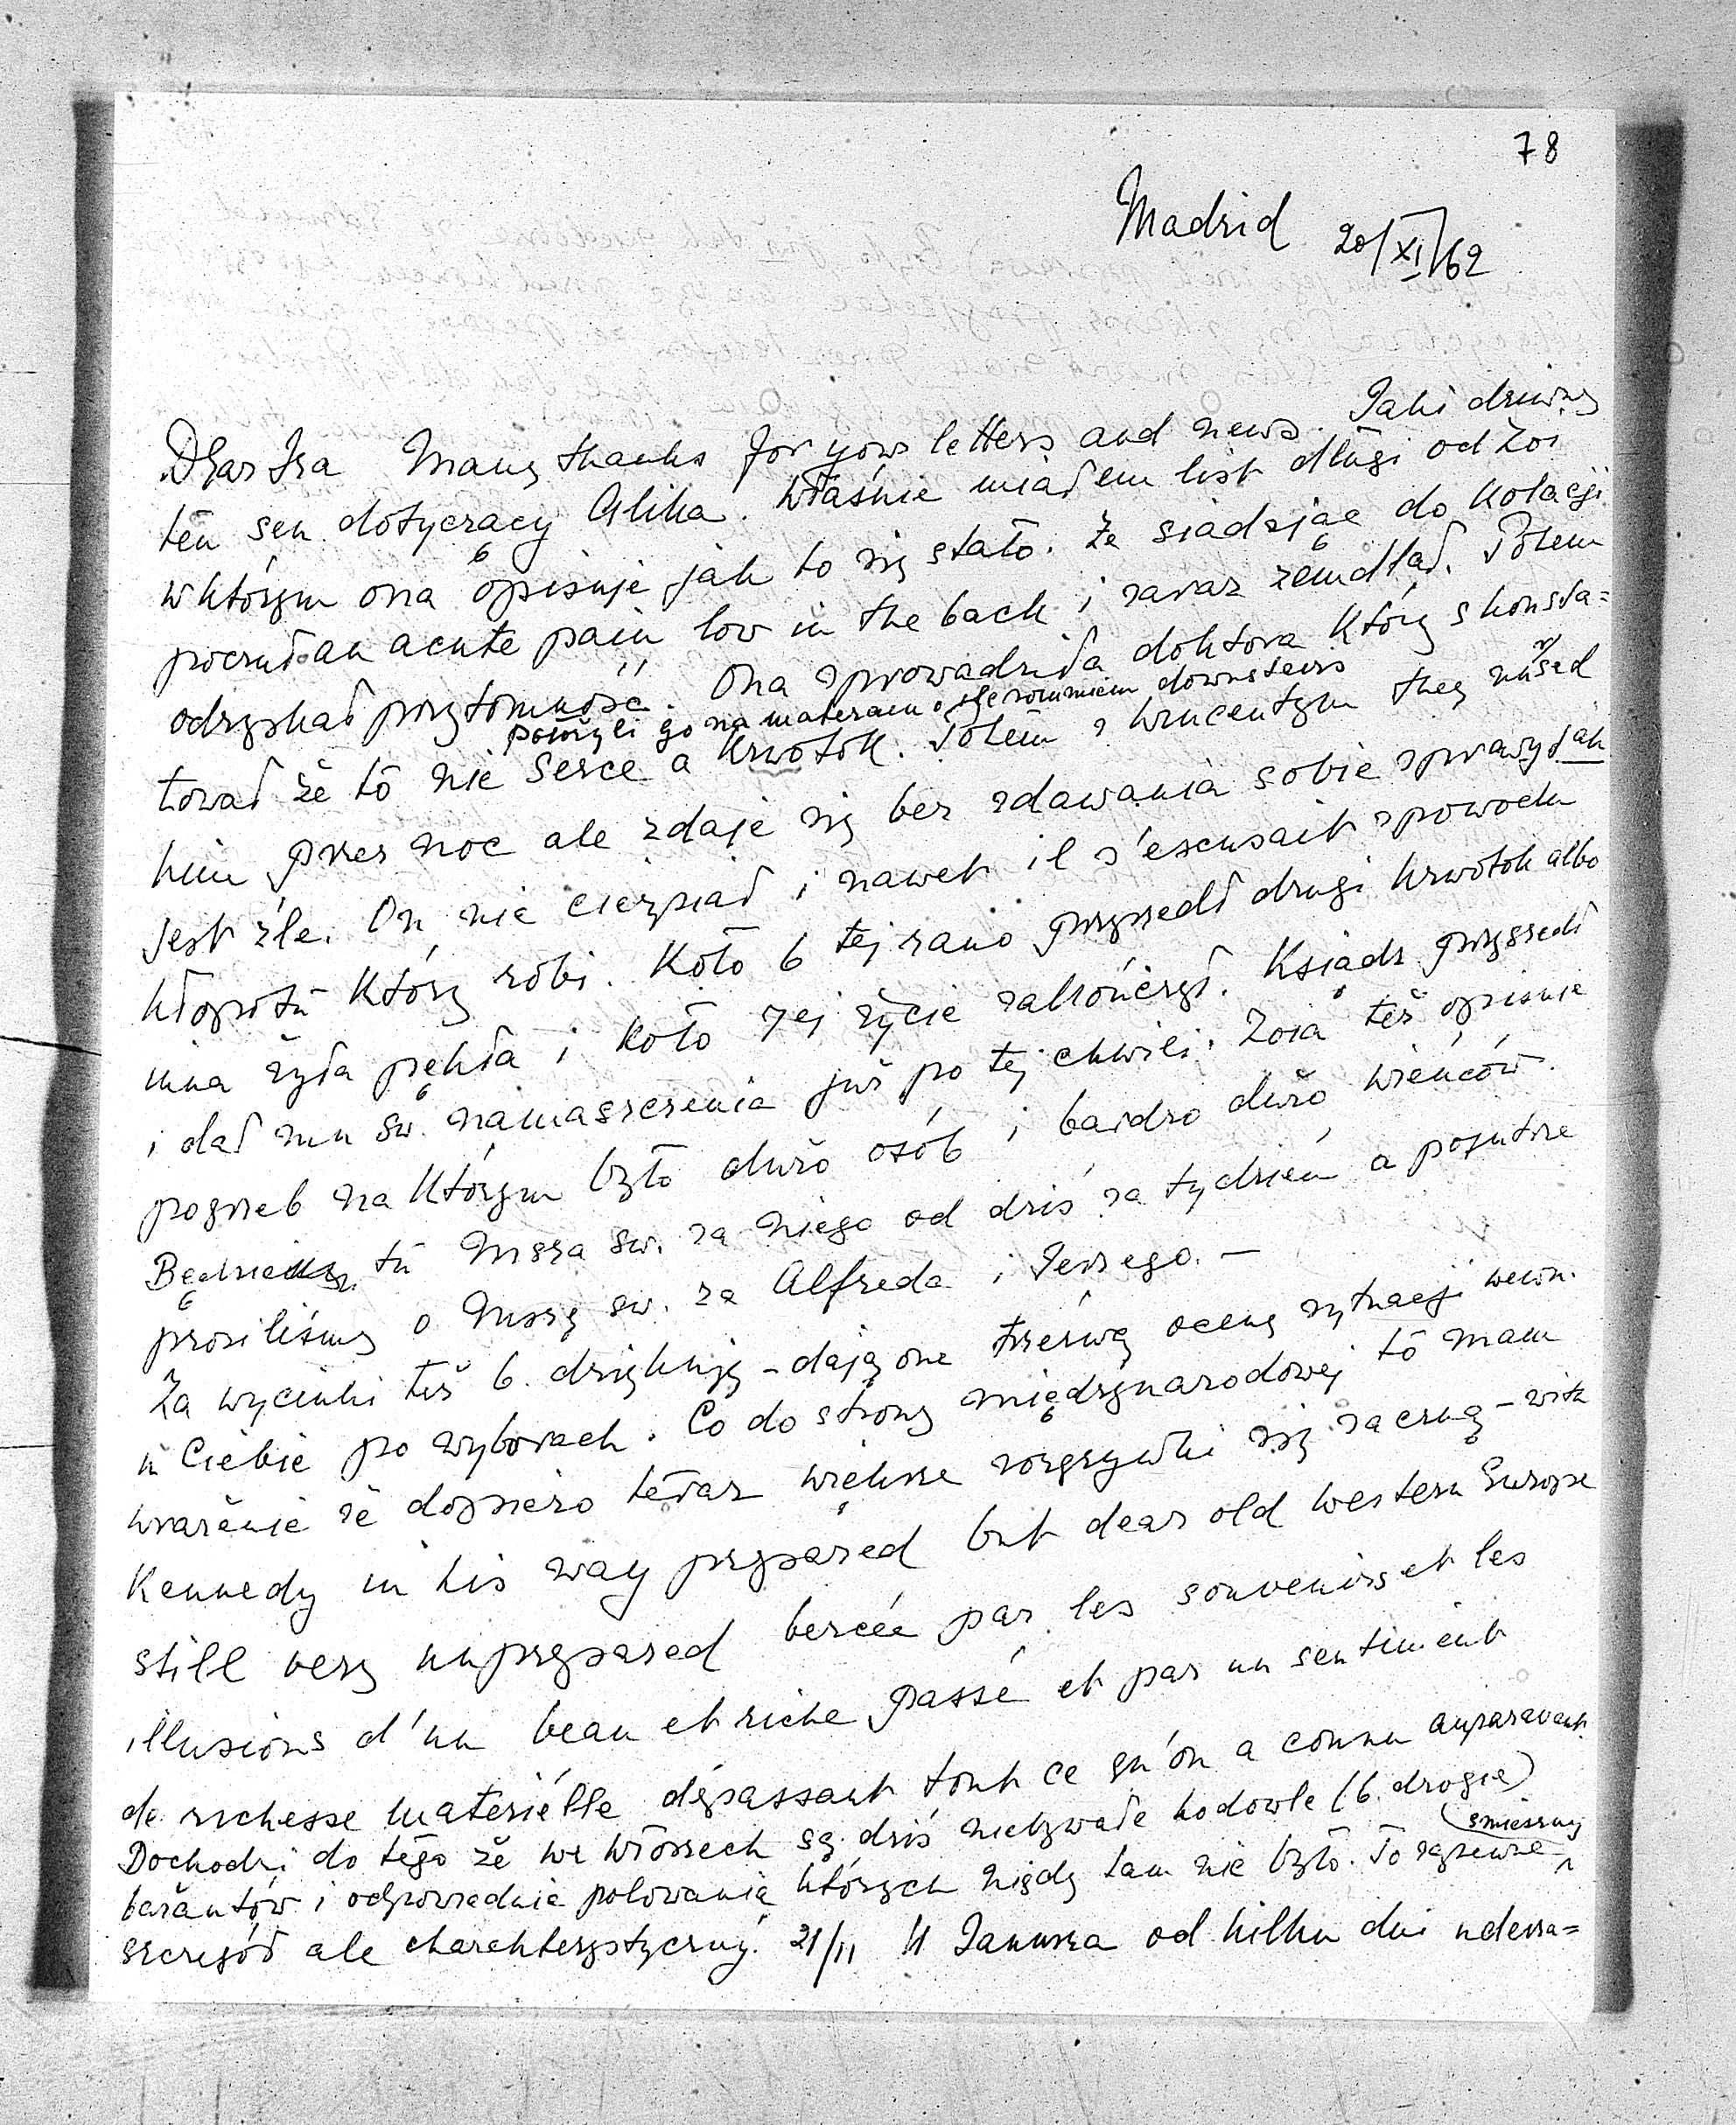 78
Madrid 20/XI/62
Dear Isa Many thanks for your letters and news. Taki dziwny
ten sen dotyczący Alika. Właśnie miałem list długi od Zoi
w którym ona opisuje jak to się stało. Że siadając do kolacji
poczuł an acute pain low in the back i zaraz zemdlał. Potem
odzyskał przytomność. Ona sprowadziła doktora który skonsta=
położyli go na materacu downstairs
tował że to nie serce a krwotok. Potem z Wincentym they nursed
him przez noc ale zdaje się bez zdawania sobie sprawy jak
jest źle. On nie cierpiał i nawet il s'excusait z powodu
kłopotu który robi. Koło 6 tej rano przyszedł drugi krwotok albo
inna żyła pękła i koło 7ej życie zakończył. Ksiądz przyszedł
i dał mu św. namaszczenia już po tej chwili. Zoia też opisuje
pogrzeb na którym było dużo osób i bardzo dużo wieńców.
Będzie tu Msza św. za niego od dziś za tydzień a pojutrze
prosiliśmy o Mszę św. za Alfreda i Jerzego. —
Za wycinki też b. dziękuję – dają one trzeźwą ocenę sytuacji wewn.
u Ciebie po wyborach. Co do strony międzynarodowej to mam
wrażenie że dopiero teraz większe rozgrywki się zaczną – with
Kennedy in his way prepared but dear old Western Europe
still very unprepared bercée par les souvenirs et les
illusions d'un beau et riche passé et par un sentiment
de richesse matérielle dépassant tout ce qu'on a connu auparavant.
Dochodzi do tego że we Włoszech są dziś niebywałe hodowle (b. drogie)
bażantów i odpowiednie polowania których nigdy tam nie było. To zapewne śmieszny
szczegół ale charakterystyczny. 21/11 U Janusza od kilku dni uderza=